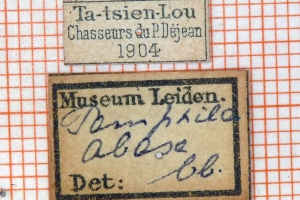 Ta-tsien-Lou
Chasseurs du P. Déjean
1904
Museum Leiden.
Pamphila
abax
Det: bb.